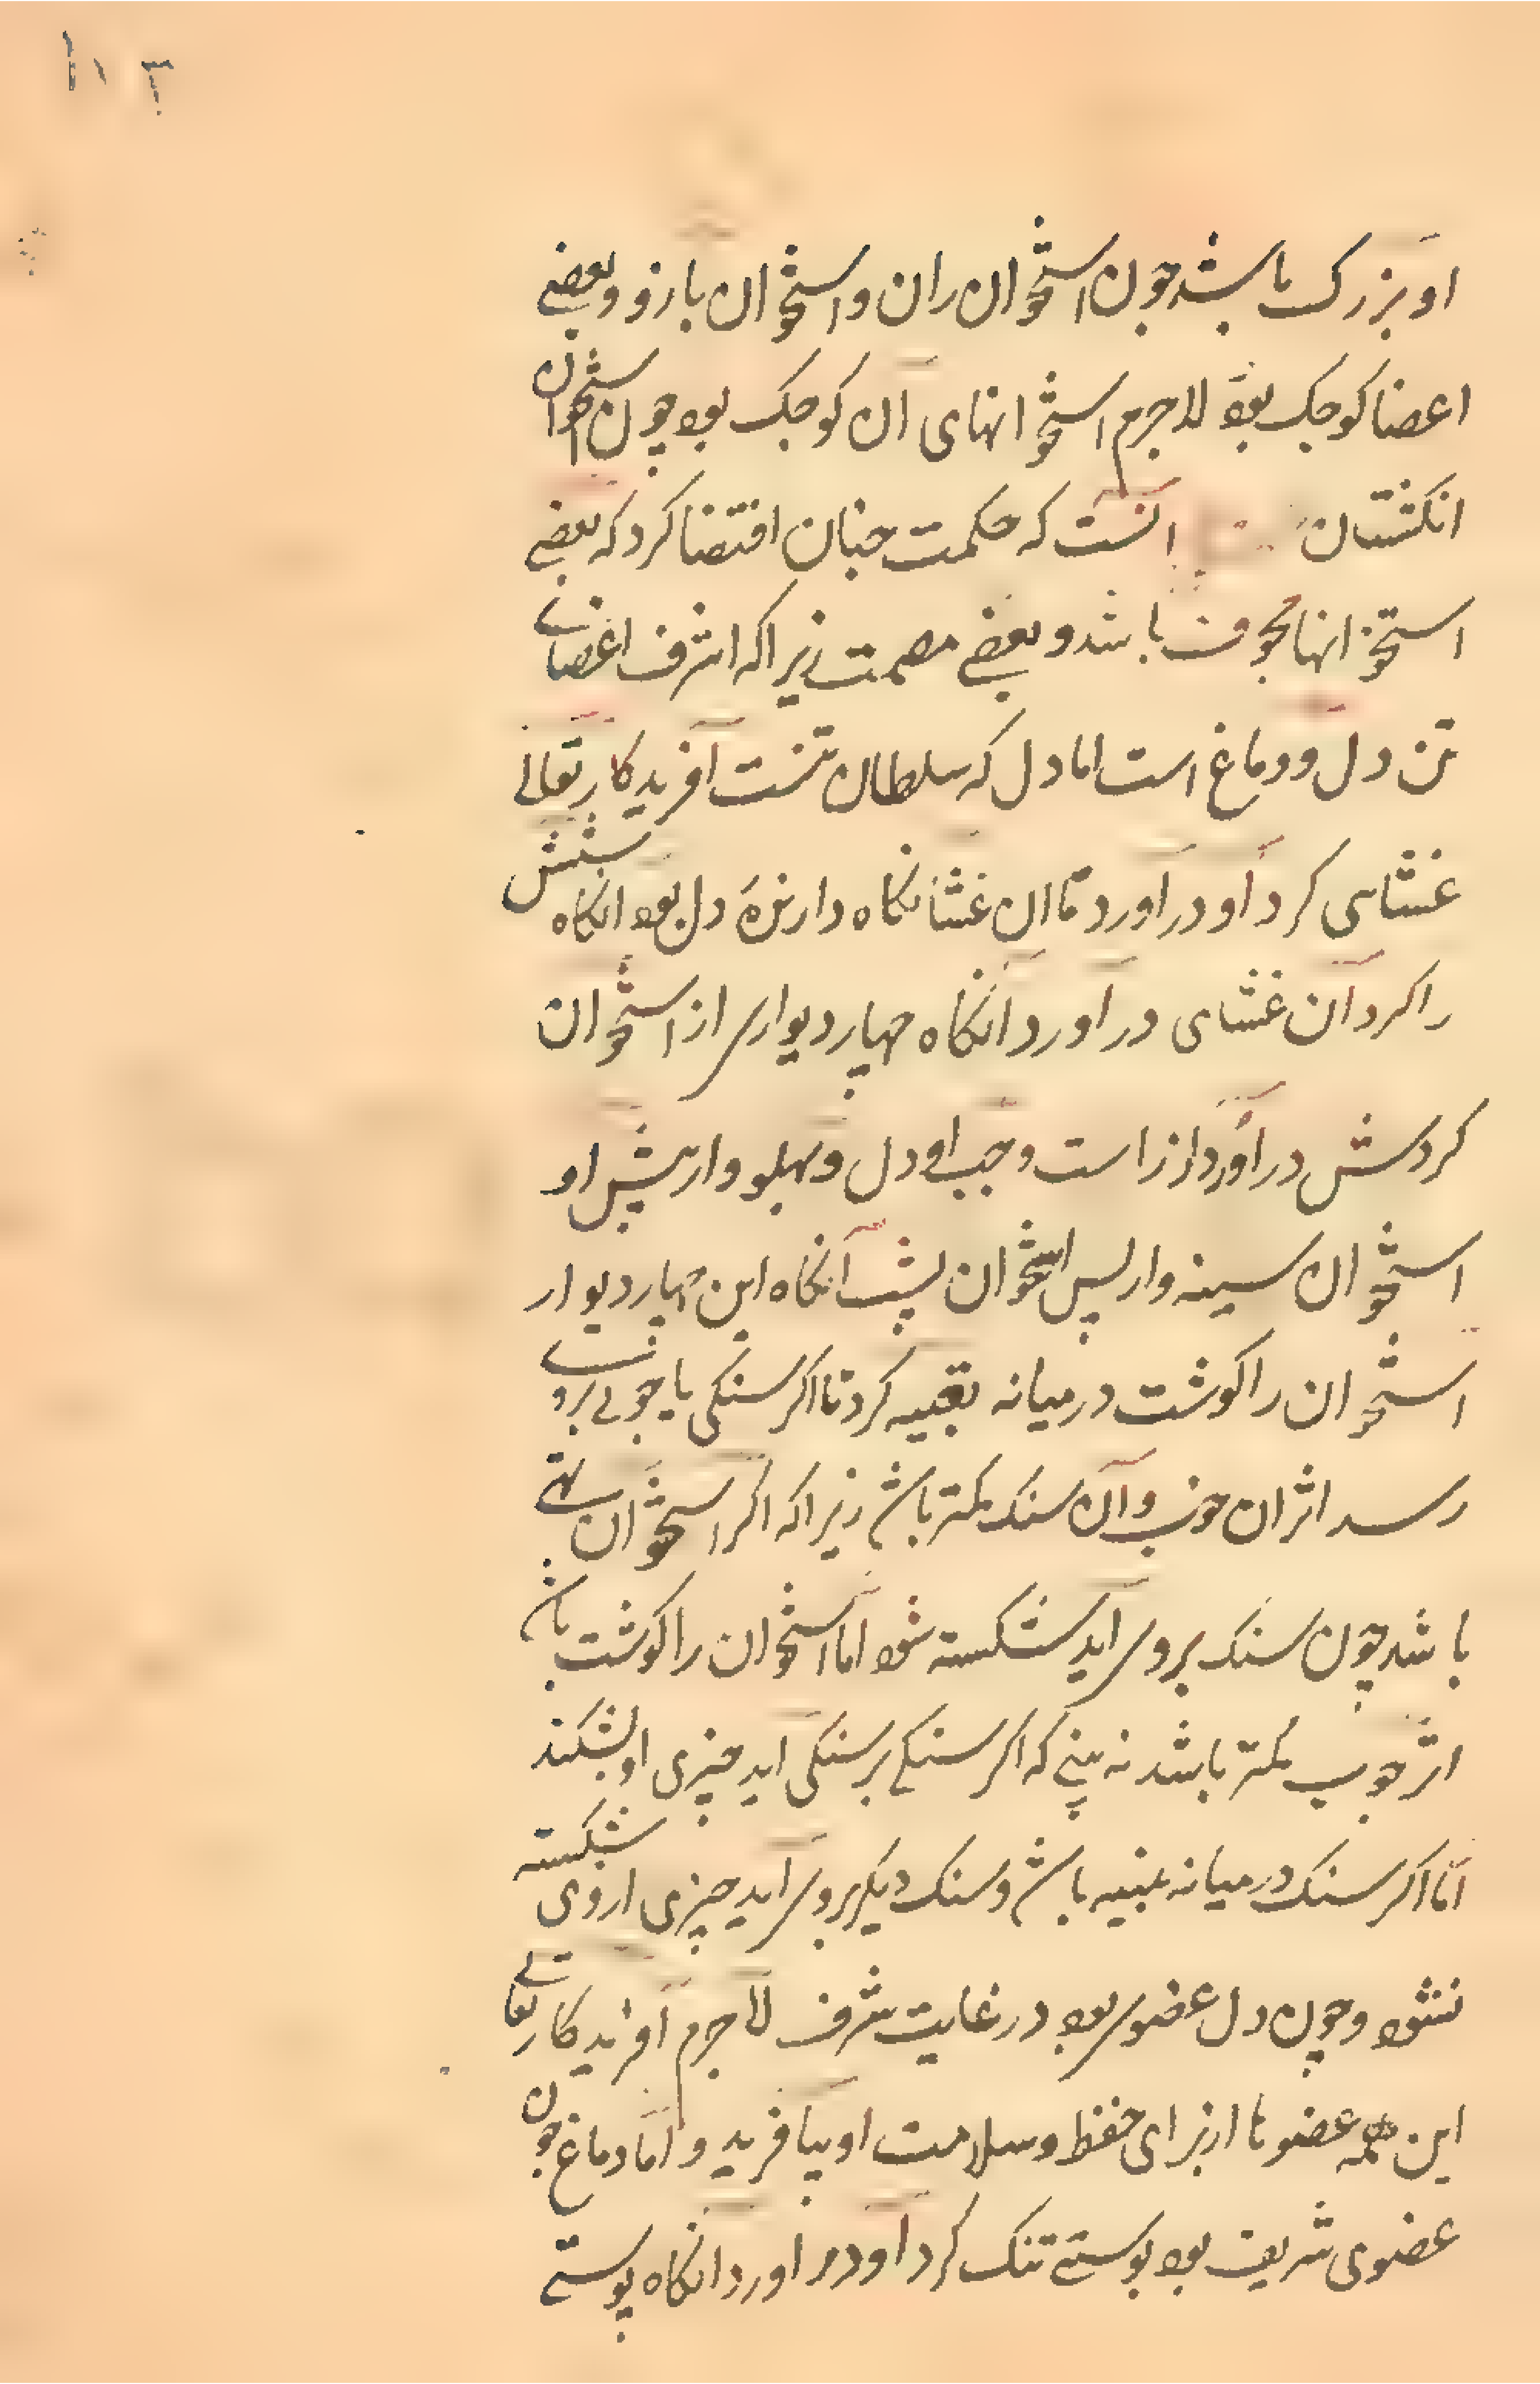 او بزرک باشد جون استخوان ران و استخوان بازو و بعضی
اعضا کوجک بود لاجرم استخوانهای آن کوجک بود چون استخوان
انکشتان آنست که حکمت جنان اقتضا کرد که بعضی
استخوانها مجوف باشد و بعضی مصمت زیرا که اشرف اعضای
تن دل و دماغ است اما دل که سلطان تنست آفریدکار تعالی
غشایی کرد او درآورد تا ان غشا نکاه دارنده دل بود انکاه شش
را کرد آن غشای درآورد آنکاه چهار دیواری از استخوان
کردش درآورد از راست و جب او دل و پهلو و از پیش او
استخوان سینه و از پس استخوان پشت آنکاه این چهار دیوار
استخوان را کوشت در میانه تعبیه کرد تا اکر سنکی یا چوبی بروی
رسد اثر ان جوب و آن سنک کمتر باشد زیرا که اکر استخوان تهی
باشد چون سنک بروی آید شکسته شود اما استخوان را کوشت باشد
اثر جوب کمتر باشد نه بینی که اکر سنکی بر سنکی اید چیزی او بشکند
اما اکر سنک در میانه پنبه باشد و سنک دیکر بروی اید چیزی از وی شکسته
نشود و چون دل عضوی بود در غایت شرف لاجرم آفریدکار تعالی
این همه عضوها از برای حفظ و سلامت او بیافرید و اما دماغ چون
عضوی شریف بود پوستی تنک کرد او درآورد انکاه پوستی